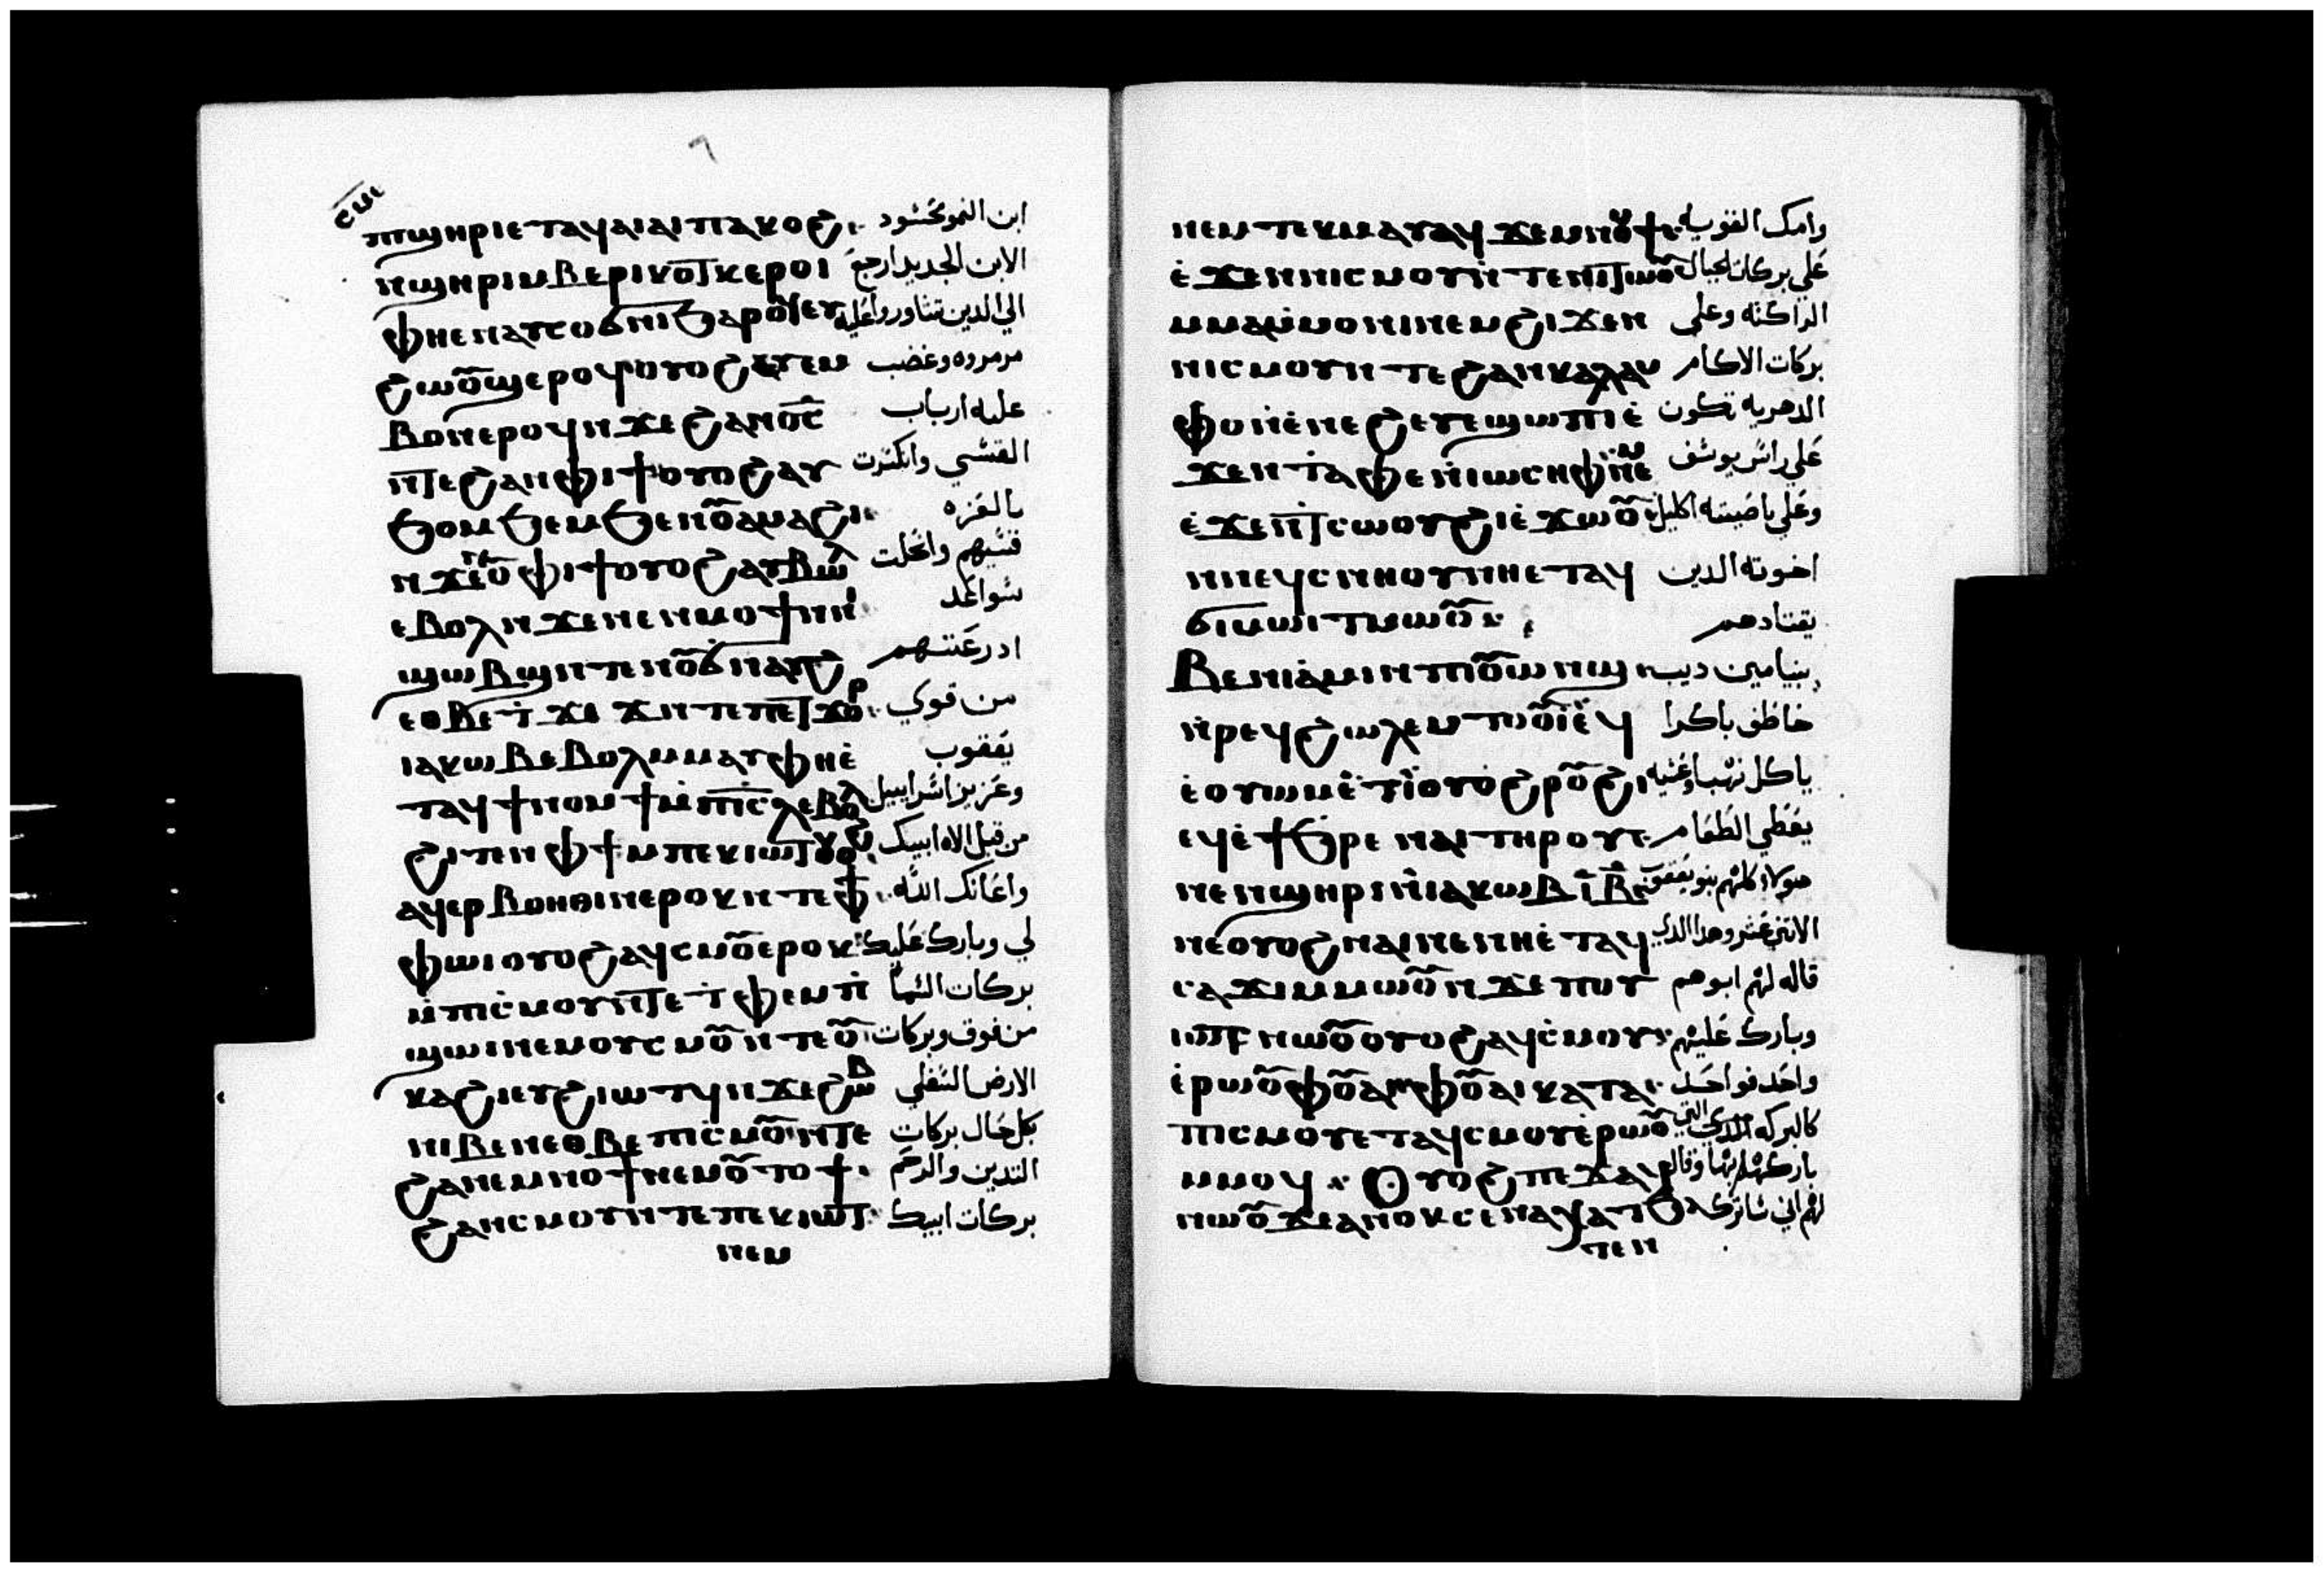 ⲡϣⲏⲣⲓ ⲉⲧⲁϥⲁⲓⲁⲓ ⲡⲁⲭⲟϩ ابن النمو محسود
ⲛϣⲏⲣⲓ ⲙⲃⲉⲣⲓ ⲕⲟⲧⲕ ⲉⲣⲟⲓ الابن الجديد ارجع
ⲫⲏ ⲉⲛⲁⲩⲥⲟϭⲛⲓ ϧⲁⲣⲟϥ ⲉⲩ الي الدين تشاوروا عليه
ϩⲱⲟⲩϣ ⲉⲣⲟϥ ⲟⲩⲟϩ مرمروه وغضب
ⲃⲟⲛ ⲉⲣⲟϥ ⲛϫⲉ ϩⲁⲛⲟ̅ⲥ̅ عليه ارباب
ⲛⲧⲉ ϩⲁⲛⲫⲓϯ ⲟⲩⲟϩ ⲁⲩ القسي وانكسرت
ϧⲟⲙϧⲉⲙ ϧⲉⲛ ⲟⲩⲁⲙⲁϩⲓ بالعزه
ⲛϫⲉ ⲛⲟⲩⲫⲓϯ ⲟⲩⲟϩ ⲁⲩⲃⲱⲗ قسيهم وانحلت
ⲉⲃⲟⲗ ⲛϫⲉ ⲛⲉⲛⲙⲟϯ ⲛⲛ سواعد
ϣⲱⲃϣ ⲛⲧⲉ ⲛⲟⲩϭⲛⲁⲩϩ ادرعتهم
ⲉⲑⲃⲉ ϯϫⲓϫ ⲛⲧⲉ ⲡⲉⲧϫⲟⲣ من قوي
ⲓⲁⲕⲱⲃ ⲉⲃⲟⲗ ⲙⲙⲁⲩ ⲫⲏ ⲉ يعقوب
ⲧⲁϥϯⲛⲟⲙϯ ⲙⲡⲓ̅ⲥ̅ⲗ̅ ⲉⲃⲟⲗ وعزيز اسراييل
ϩⲓⲧⲉⲛ ⲫϯ ⲙⲡⲉⲕⲓⲱⲧ ⲟⲩⲟϩ من قبل الاه ابيك
ⲁϥⲉⲣⲃⲟⲏⲑⲓⲛ ⲉⲣⲟⲕ ⲛⲧⲉ ⲫϯ واعانك الله
ⲫⲱⲓ ⲟⲩⲟϩ ⲁϥⲥⲙⲟⲩ ⲉⲣⲟⲕ لي وبارك عليك
ⲙⲡⲓⲥⲙⲟⲩ ⲛⲧⲉ ⲧⲫⲉ ⲙⲡ بركات السما
ϣⲱⲓ ⲛⲉⲙ ⲟⲩⲥⲙⲟⲩ ⲛⲧⲉ ⲟⲩ من فوق وبركات
ⲕⲁϩⲓ ⲉⲩϩⲓⲱⲧϥ ⲛϫⲉ ϩⲱⲃ الارض السفلي
ⲛⲓⲃⲉⲛ ⲉⲑⲃⲉ ⲡⲓⲥⲙⲟⲩ ⲛⲧⲉ بكل حال بركات
ϩⲁⲛⲉⲙⲛⲟϯ ⲛⲉⲙ ⲟⲩⲧⲟϯ التديين والرحم
ϩⲁⲛⲥⲙⲟⲩ ⲛⲧⲉ ⲡⲉⲕⲓⲱⲧ بركات ابيك
ⲛⲉⲙ
ⲛⲉⲙ ⲧⲉⲕⲙⲁⲩ ⲁϥϫⲉⲙⲛⲟⲙϯ وامك القويه
ⲉϫⲉⲛ ⲛⲓⲥⲙⲟⲩ ⲛⲧⲉ ⲛⲓⲧⲱⲟⲩ علي بركات الجبال
ⲙⲙⲁⲛⲙⲟⲛⲓ ⲛⲉⲙ ϩⲓϫⲉⲛ الراكنه وعلي
ⲛⲓⲥⲙⲟⲩ ⲛⲧⲉ ϩⲁⲛⲕⲁⲗⲁⲙ بركات الاكام
ⲫⲟ ⲛⲉⲛⲉϩ ⲉⲩⲉϣⲱⲡⲓ ⲉ الدهريه تكون
ϫⲉⲛ ⲧⲁⲫⲉ ⲛⲓⲱⲥⲏⲫ ⲛⲉⲙ علي راس يوسف
ⲉϫⲉⲛ ⲧⲥⲱⲟⲩϩⲓ ⲉϫⲱⲟⲩ وعلي ناصيته اكليل
ⲛⲛⲉϥⲥⲛⲏⲟⲩ ⲛⲏ ⲉⲧⲁϥ اخوته الدين
ϭⲓⲙⲱⲓⲧ ⲛⲱⲟⲩ يقتادهم
ⲃⲉⲛⲓⲁⲙⲓⲛ ⲡⲓⲟⲩⲱⲛϣ بنيامين ديب
ⲛⲣⲉϥϩⲱⲗⲉⲙ ⲧⲟⲟⲩⲓ ⲉϥ خاطف باكرا
ⲉⲟⲩⲱⲙ ⲉⲧⲓ ⲟⲩⲟϩ ⲣⲟⲩϩⲓ ياكل نهبا وعشيه
ⲉϥⲉϯϧⲣⲉ ⲛⲁⲓ ⲧⲏⲣⲟⲩ يعطي الطعام
ⲛⲉⲛϣⲏⲣⲓ ⲛⲓⲁⲕⲱⲃ ⲓ̅ⲃ̅ هولاء كلهم بنو يعقوب
ⲛⲉ ⲟⲩⲟϩ ⲛⲁⲓ ⲛⲉ ⲛⲏ ⲉⲧⲁϥ الاثني عشر وهدا الدي
ⲥⲁϫⲓ ⲙⲙⲱⲟⲩ ⲛϫⲉ ⲡⲟⲩ قاله لهم ابوهم
ⲓⲱⲧ ⲛⲱⲟⲩ ⲟⲩⲟϩ ⲁϥⲥⲙⲟⲩ وبارك عليهم
ⲉⲣⲱⲟⲩ ⲫⲟⲩⲁⲓ ⲫⲟⲩⲁⲓ ⲕⲁⲧⲁ واحد فواحد
ⲡⲓⲥⲙⲟⲩ ⲉⲧⲁϥⲥⲙⲟⲩ ⲉⲣⲱⲟⲩ كالبركه التي
ⲙⲙⲟϥ ⲟⲩⲟϩ ⲡⲉϫⲁϥ باركهم بها وقال
ⲛⲱⲟⲩ ϫⲉ ⲁⲛⲟⲕ ⲥⲉⲛⲁⲭⲁⲧ لهم اني ساترك
ⲧⲉⲛ